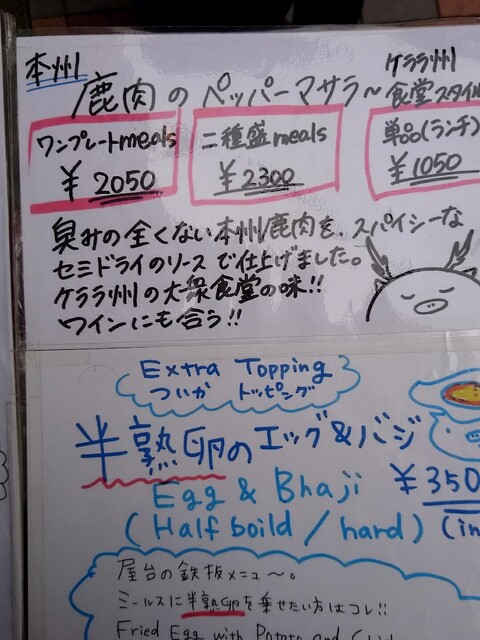 本州
鹿肉のペッパーマサラ〜
ケララ州
食堂スタイル
ワンプレートmeals
¥2050
二種盛meals
¥2300
単品(ランチ)
¥1050
臭みの全くない本州鹿肉を、スパイシーな
セミドライのソースで仕上げました。
ケララ州の大衆食堂の味!!
ワインにも合う!!
Extra Topping
ついか トッピング
半熟卵のエッグ&バジ
Egg & Bhaji
¥350
(Half boild / hard) (in
屋台の鉄板メニュ〜。
ミールスに半熟卵を乗せたい方はコレ!!
Fried Egg with Potato and